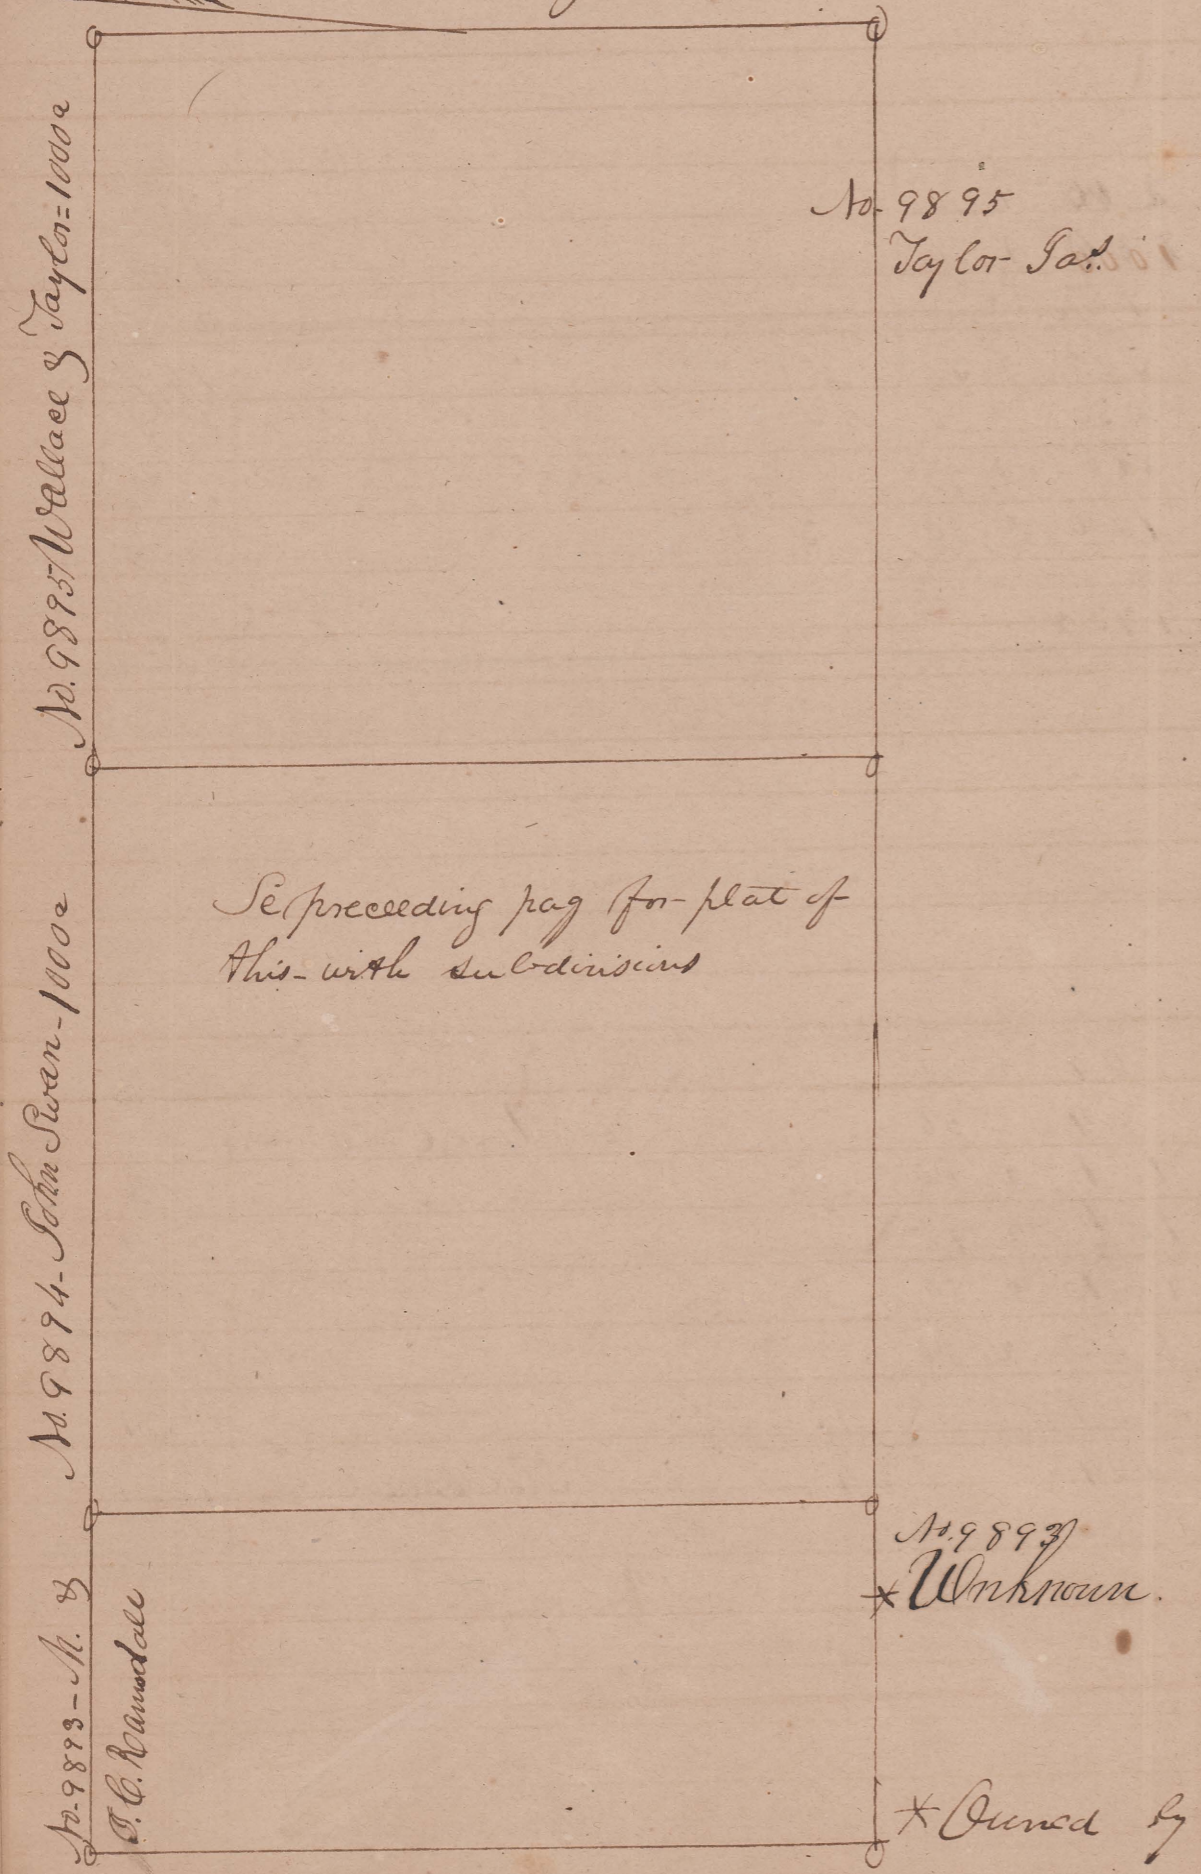 No. 9895 Wallace & Taylor = 1000a
No. 9895
Taylor Jas.
No. 9894 - John Swan - 1000a
Se preceeding pag for plat of
this - with subdivisions
No. 9893 - M. &
T. C. Ramsdall
No. 9893
* Unknown.
* Owned by